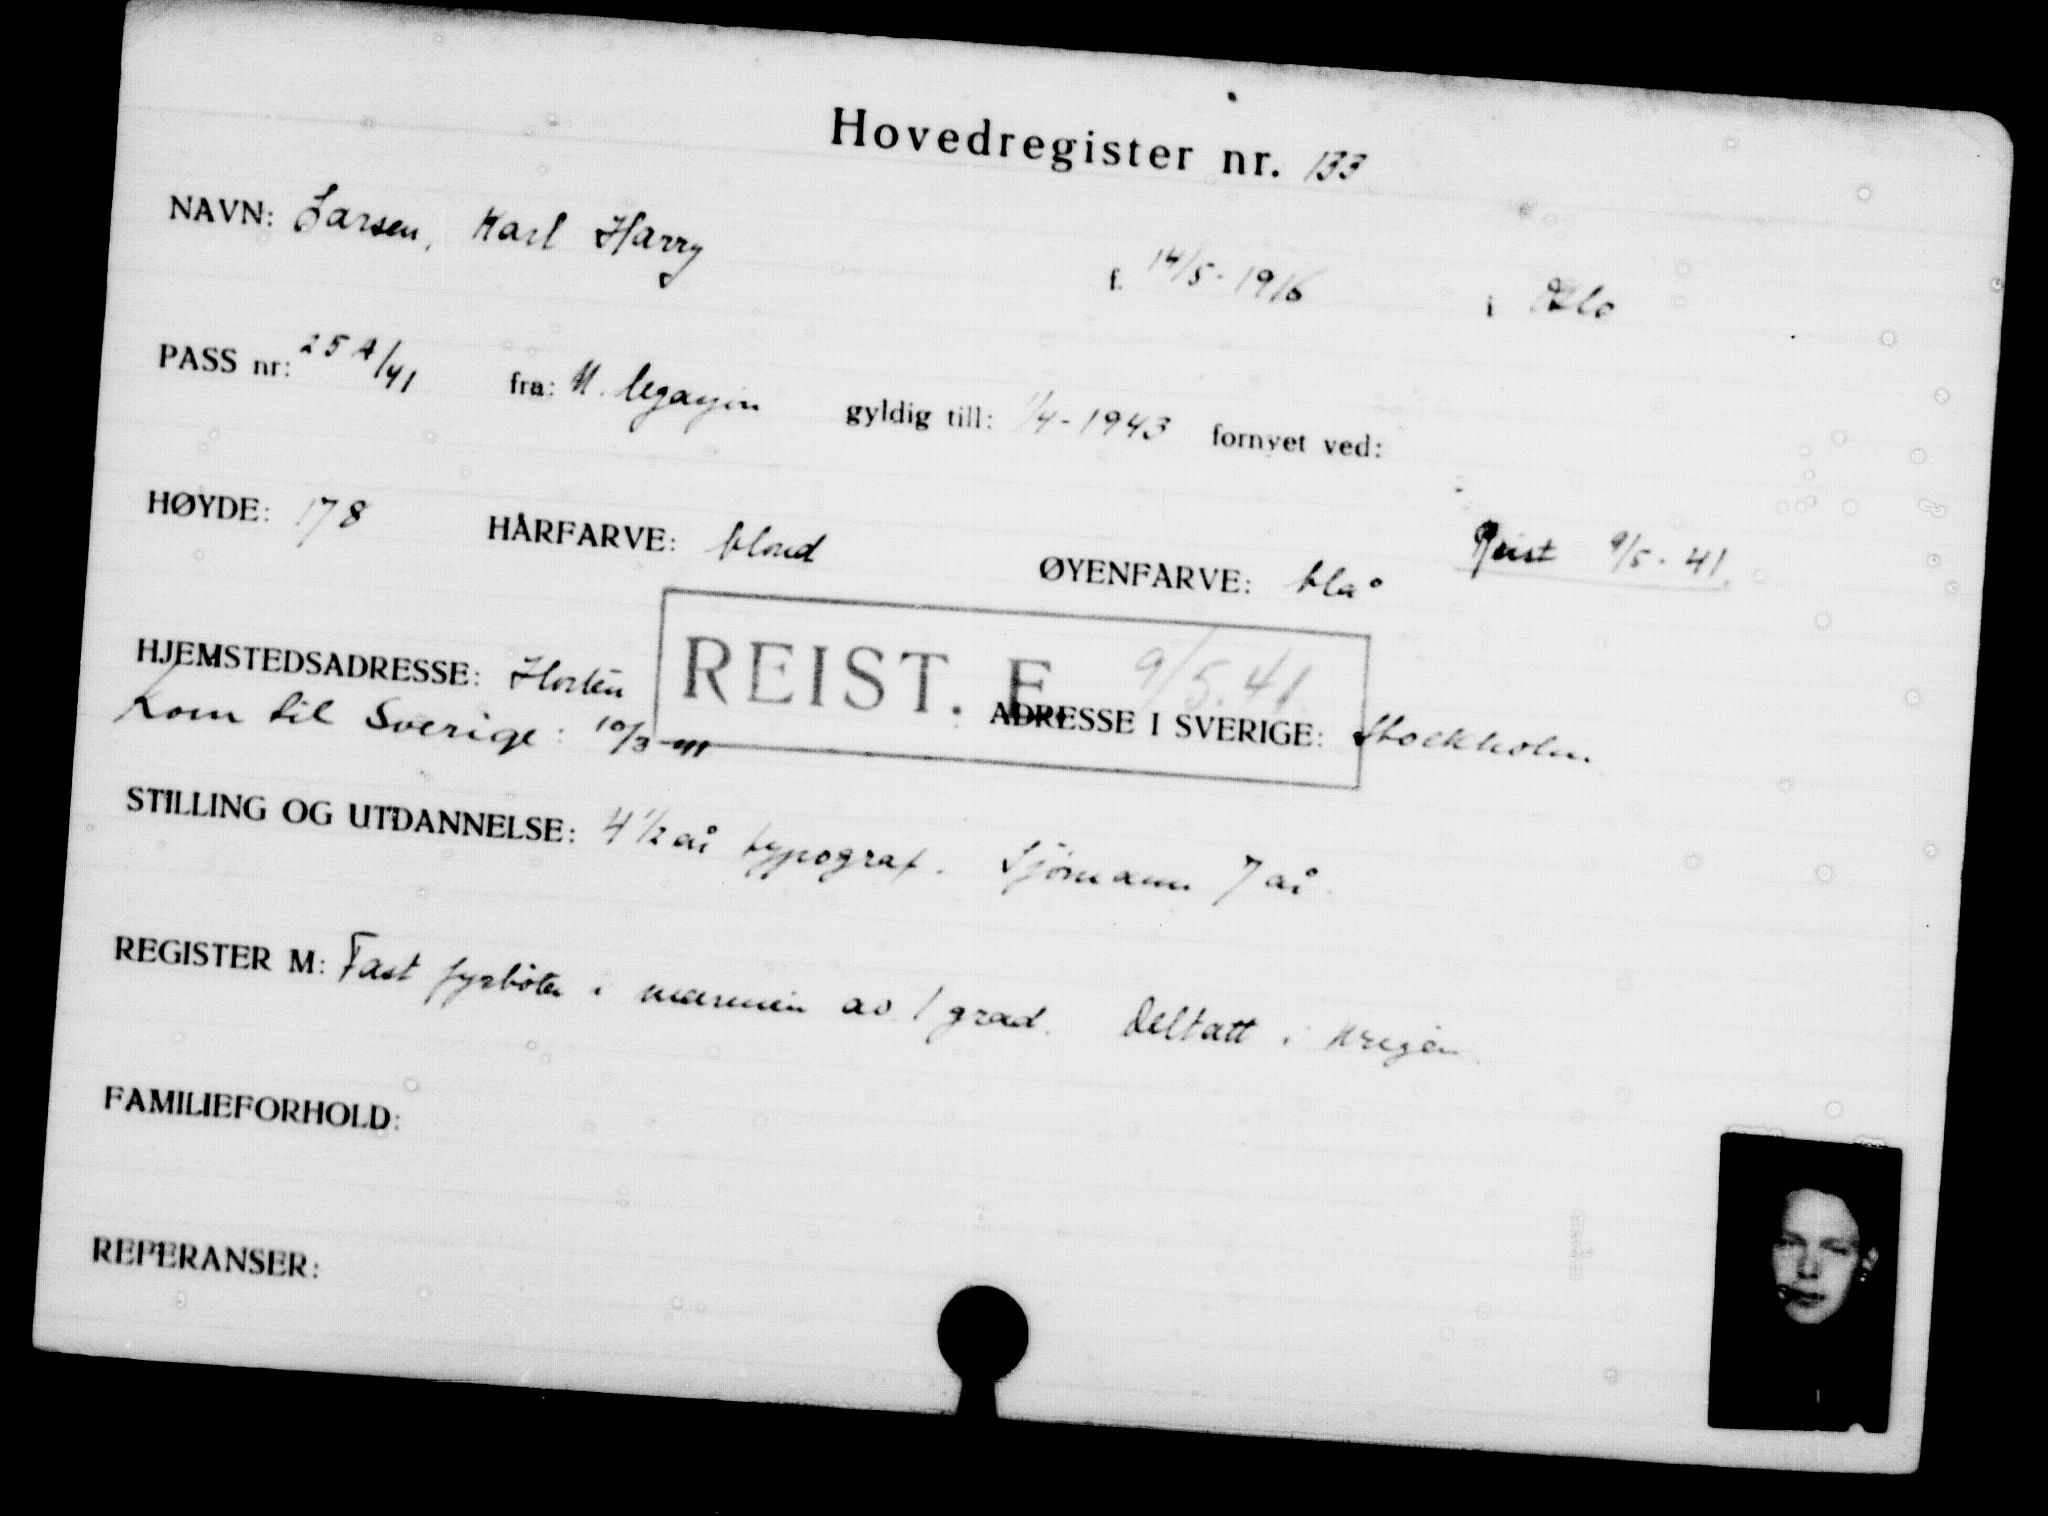 Hovedregister nr. 133
NAVN: Larsen, Karl Harry f. 14/5-1916 i Oslo
PASS nr: 25A/41 fra: N. legasjon gyldig till: 1/4-1943 fornyet ved:
HØYDE: 178 HÅRFARVE: blond ØYENFARVE: blå Reist 9/5-41.
REIST. F. 9/5.41.
HJEMSTEDSADRESSE: Horten ADRESSE I SVERIGE: Stockholm.
Kom til Sverige: 10/3-41
STILLING OG UTDANNELSE: 4 1/2 år typograf. Sjømann 7 år.
REGISTER M: Fast fyrbøter i marinen av 1 grad. Deltatt i krigen.
FAMILIEFORHOLD:
REFERANSER: